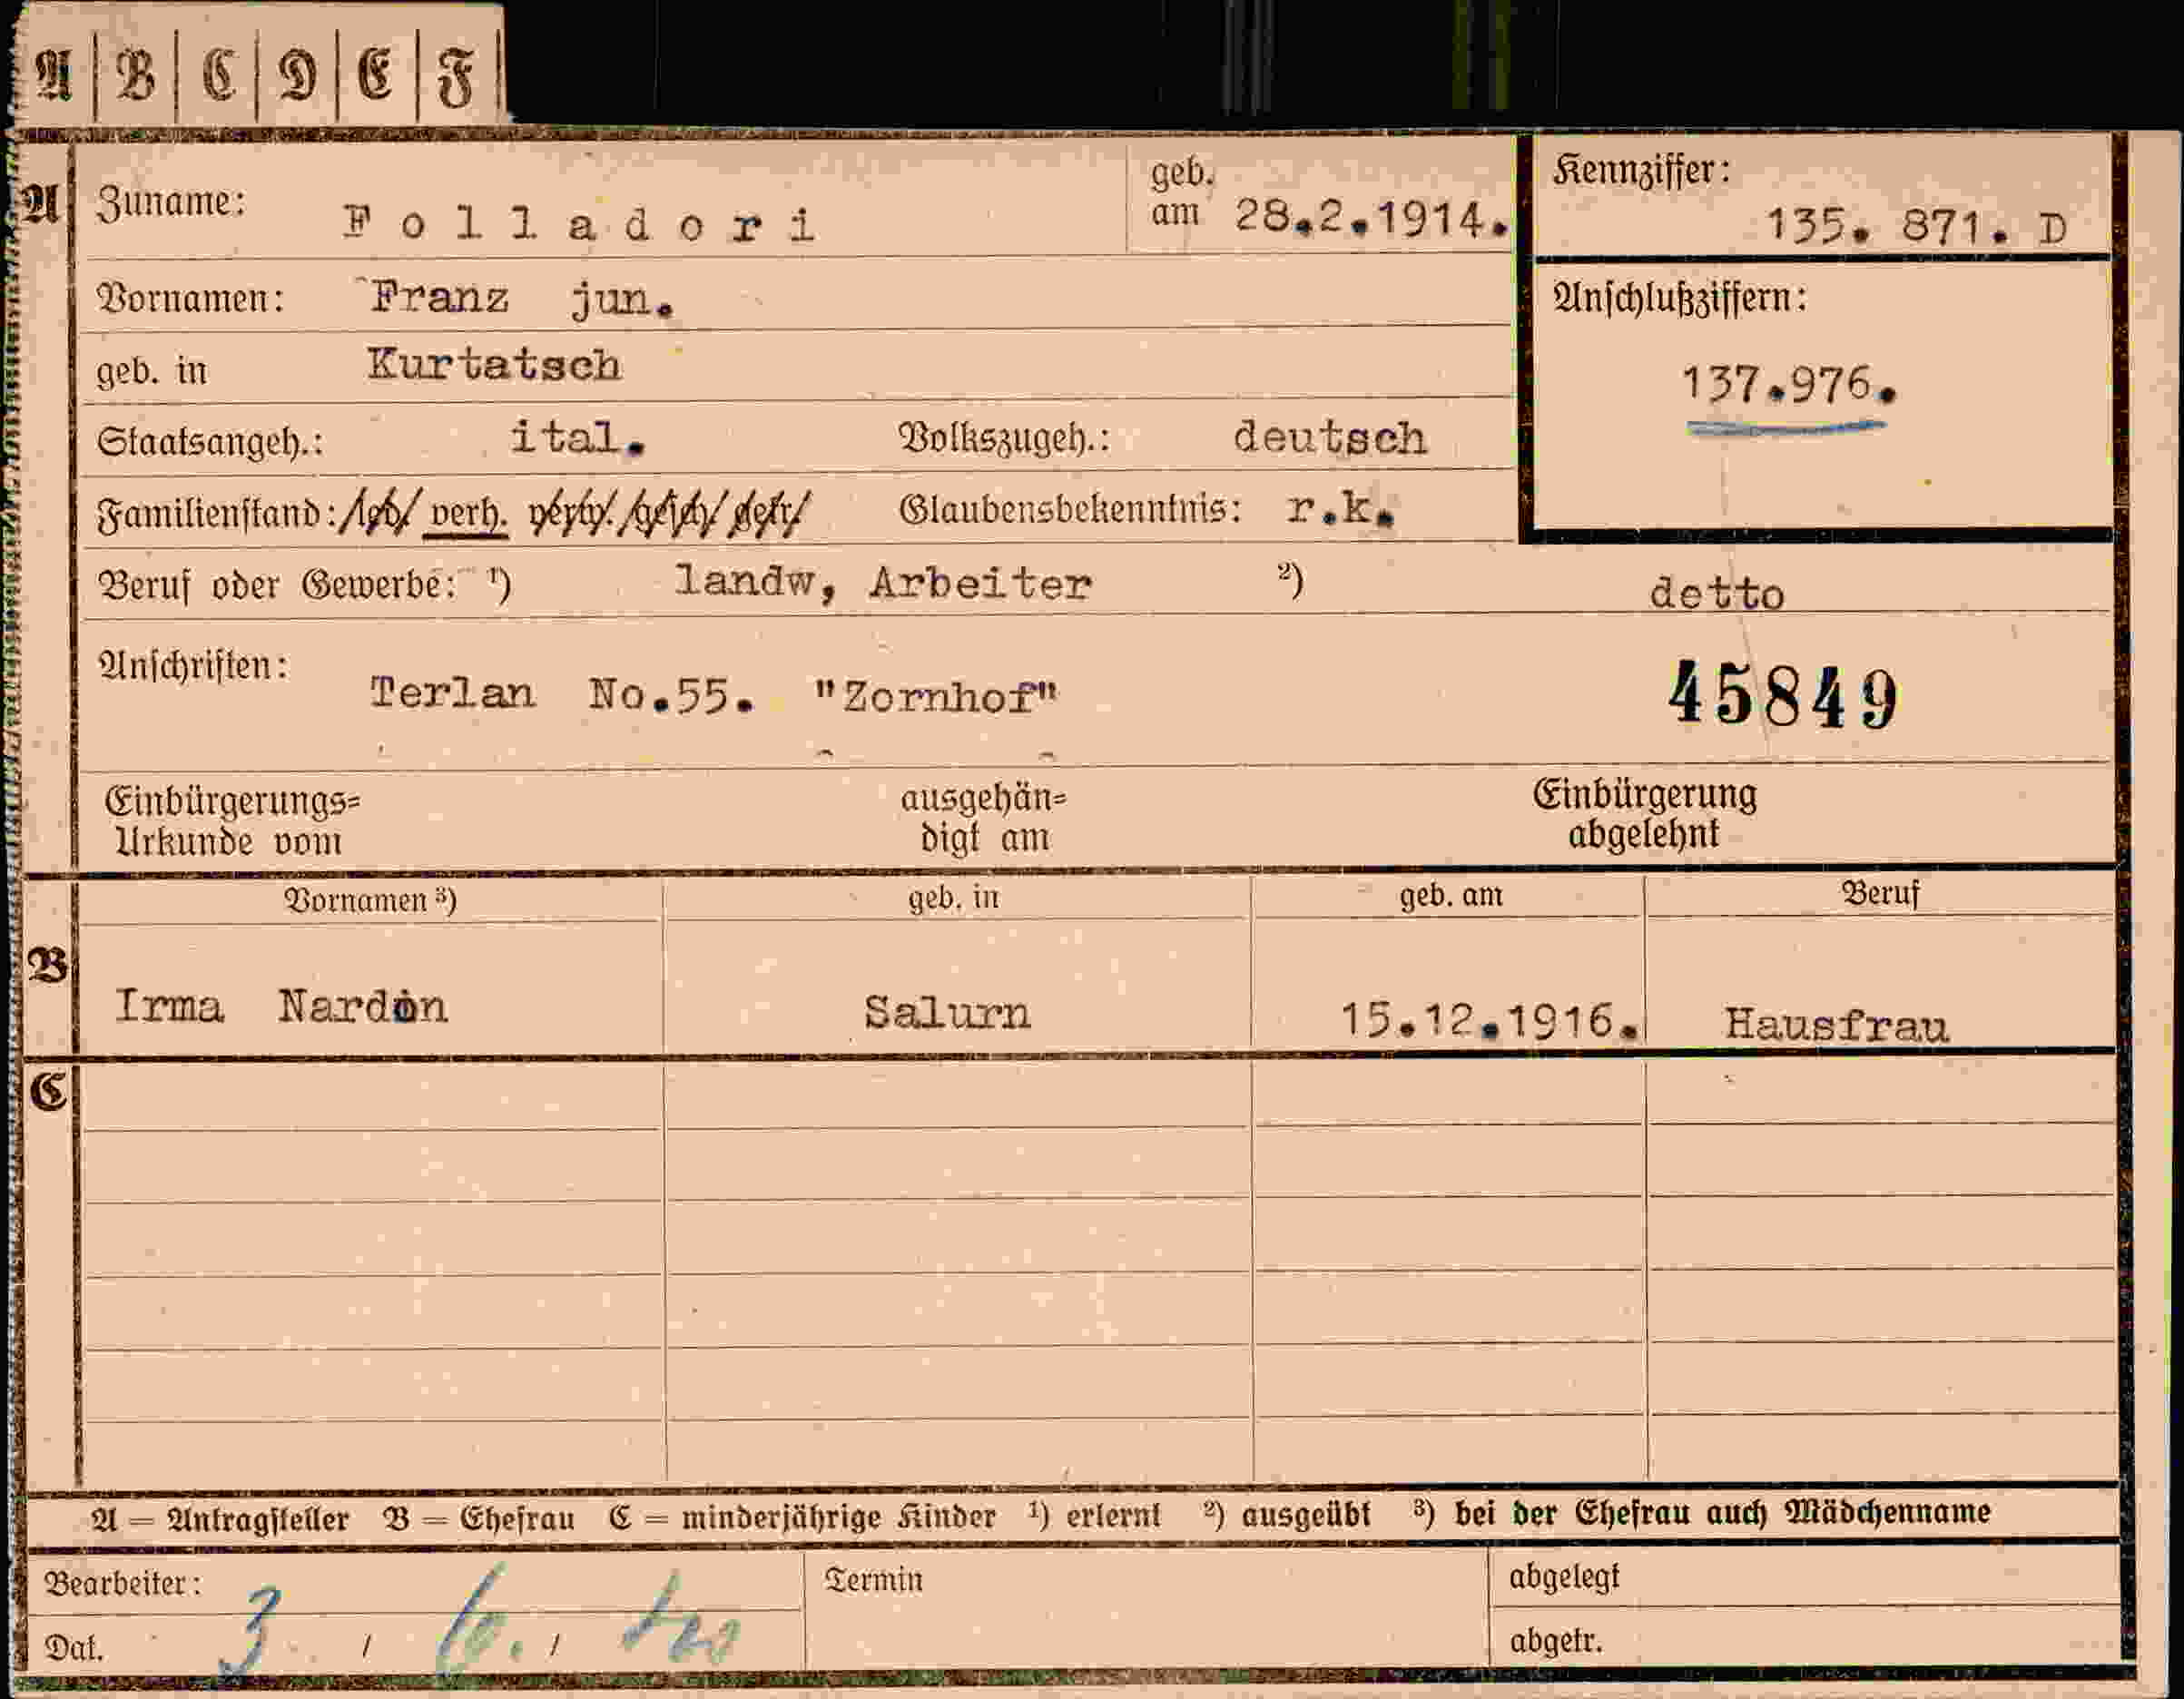 A B C D E F
A Zuname: Folladori geb. am 28.2.1914. Kennziffer: 135. 871. D
Vornamen: Franz jun. Anschlußziffern:
geb. in Kurtatsch 137.976.
Staatsangeh.: ital. Volkszugeh.: deutsch
Familienstand: led. verh. verw. gesch. getr. Glaubensbekenntnis: r.k.
Beruf oder Gewerbe: ¹) landw, Arbeiter ²) detto
Anschriften: Terlan No.55. "Zornhof" 45849
Einbürgerungs= ausgehän= Einbürgerung
Urkunde vom digt am abgelehnt
Vornamen ³) geb. in geb. am Beruf
B Irma Nardon Salurn 15.12.1916. Hausfrau
C
A = Antragsteller B = Ehefrau C = minderjährige Kinder ¹) erlernt ²) ausgeübt ³) bei der Ehefrau auch Mädchenname
Bearbeiter: Termin abgelegt
Dat. 3 / / abgetr.